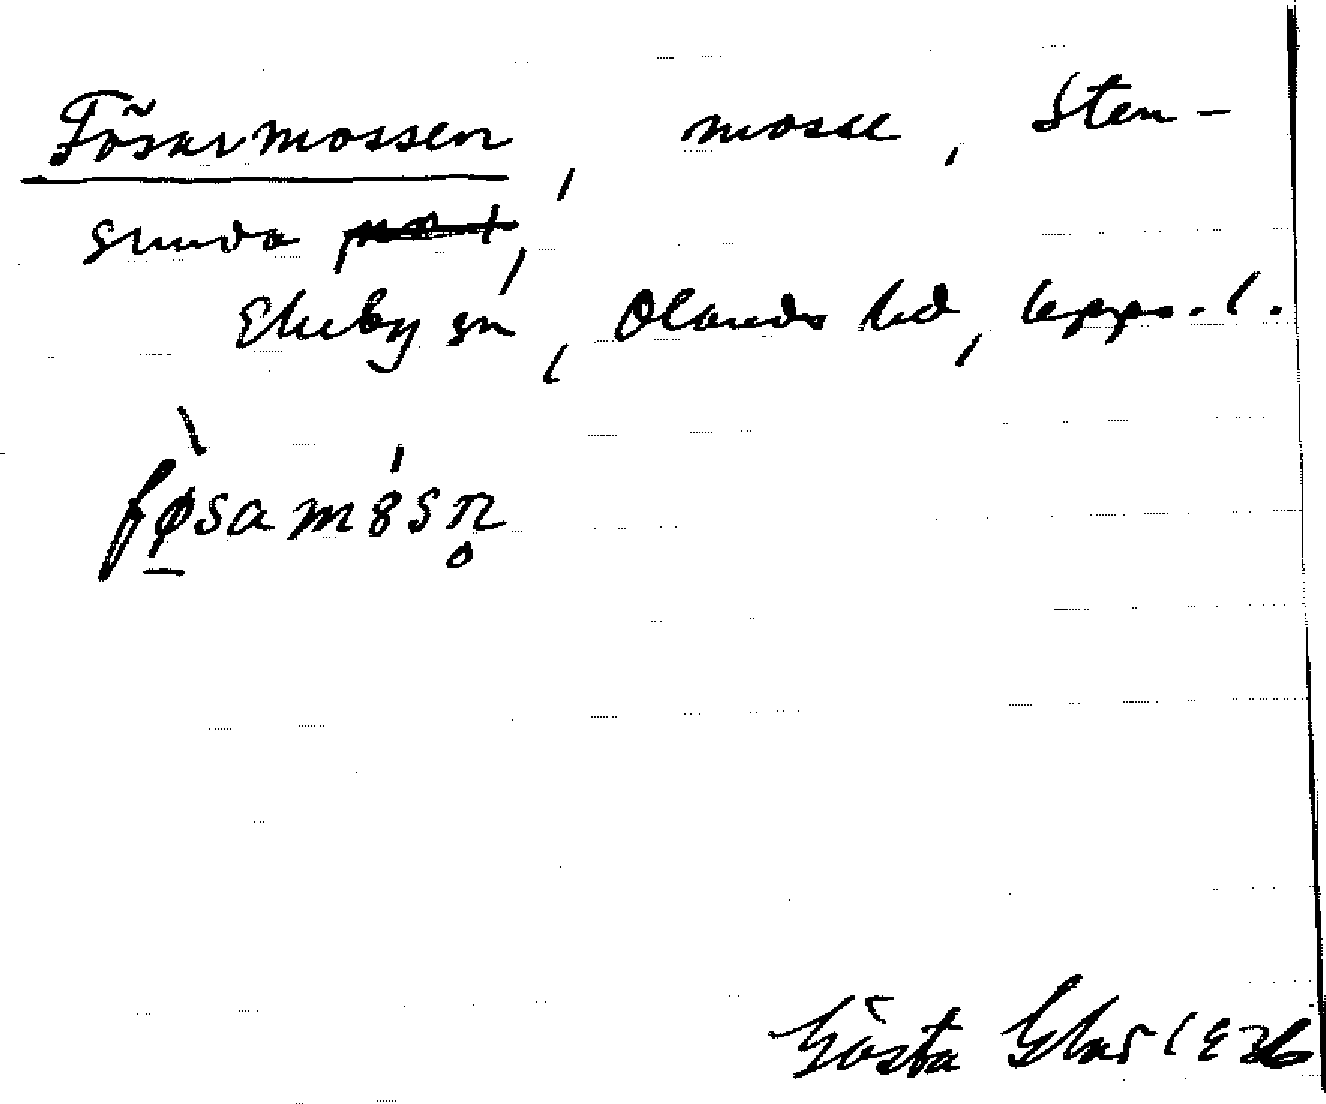 Fösarmossen, mosse, Sten-
gunda
Ekeby sn, Olands hd, Upps. l.
fø̀samósn̥
Gösta 1936